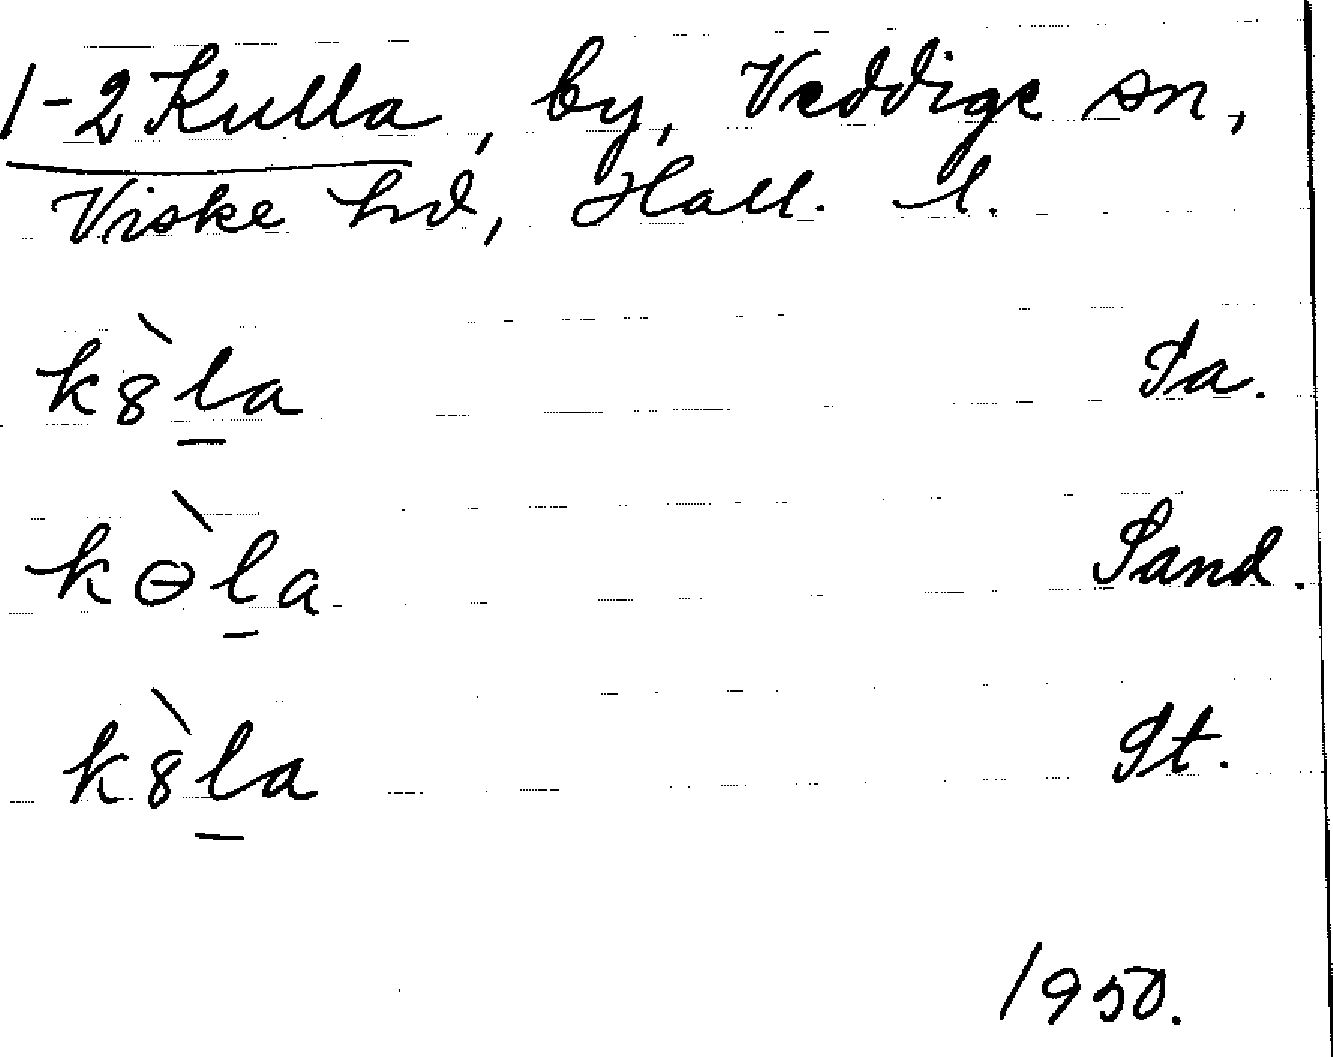 1-2 Kulla, by, Veddige sn,
Viske hd, Hall. l.
k8̀l̲a Ta.
kɵ̀l̲a Sand.
k8̀l̲a St.
1950.